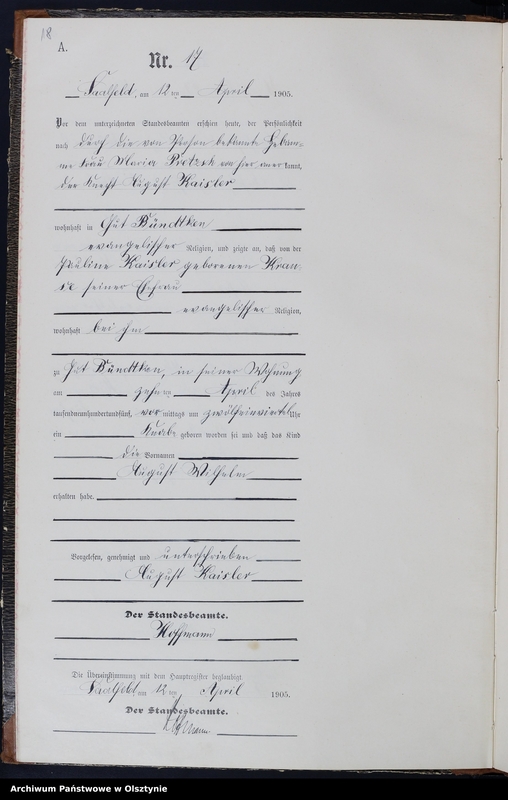 18
A.
Nr. 17
Saalfeld, am 12 ten April 1905.
Vor dem unterzeichneten Standesbeamten erschien heute, der Persönlichkeit
nach durch die von Person bekannte Hebam-
me Frau Maria von hier anerkannt,
der Knecht August Kaisler
wohnhaft in Gut Bündtken
evangelischer Religion, und zeigte an, daß von der
Pauline Kaisler geborenen Kran-
se seiner Ehefrau
evangelischer Religion,
wohnhaft bei ihm
zu Gut Bündtken, in seiner Wohnung
am zehn ten April des Jahres
tausendneunhundertundfünf, vor mittags um zwölfeinviertel Uhr
ein Knabe geboren worden sei und daß das Kind
die Vornamen
August Wilhelm
erhalten habe.
Vorgelesen, genehmigt und unterschrieben
August Kaisler
Der Standesbeamte.
Hoffmann
Die Übereinstimmung mit dem Hauptregister beglaubigt
Saalfeld, am 12 ten April 1905.
Der Standesbeamte.
Hoffmann
Archiwum Państwowe w Olsztynie